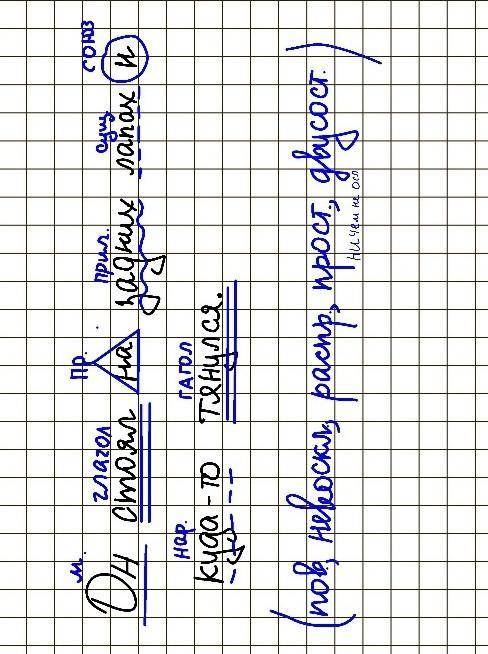 м. глагол пр. прил. сущ союз
Он стоял на задних лапах и
нар. гагол
куда-то тянулся.
(пов, невоскл, распр, прост, двусост.)
ничем не осл